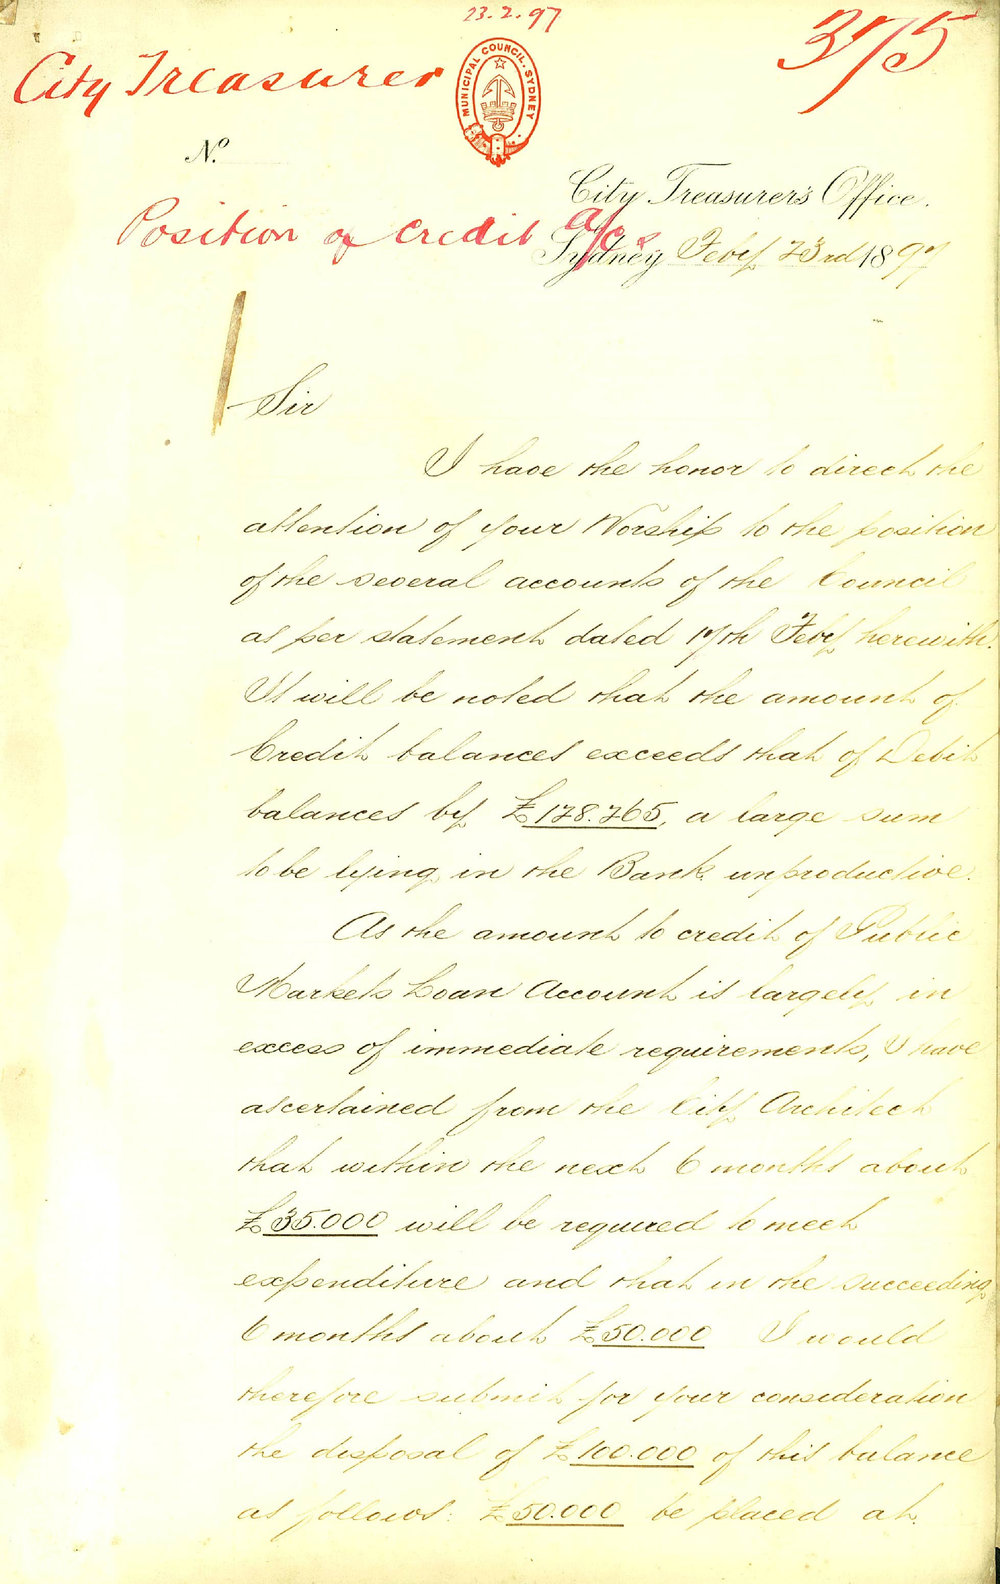 23.2.97
375
City Treasurer
MUNICIPAL COUNCIL. SYDNEY
No.
City Treasurer's Office.
Position of Credit a/cs
Sydney Feby 23rd 1897
Sir
I have the honor to direct the
attention of your Worship to the position
of the several accounts of the Council
as per statement dated 17th Feby herewith.
It will be noted that the amount of
Credit balances exceeds that of Debit
balances by £128.265, a large sum
to be lying in the Bank unproductive.
As the amount to credit of Public
Markets Loan Account is largely in
excess of immediate requirements, I have
ascertained from the City Architect
that within the next 6 months about
£35.000 will be required to meet
expenditure and that in the succeeding
6 months about £50.000 I would
therefore submit for your consideration
the disposal of £100.000 of this balance
as follows: £50.000 be placed at